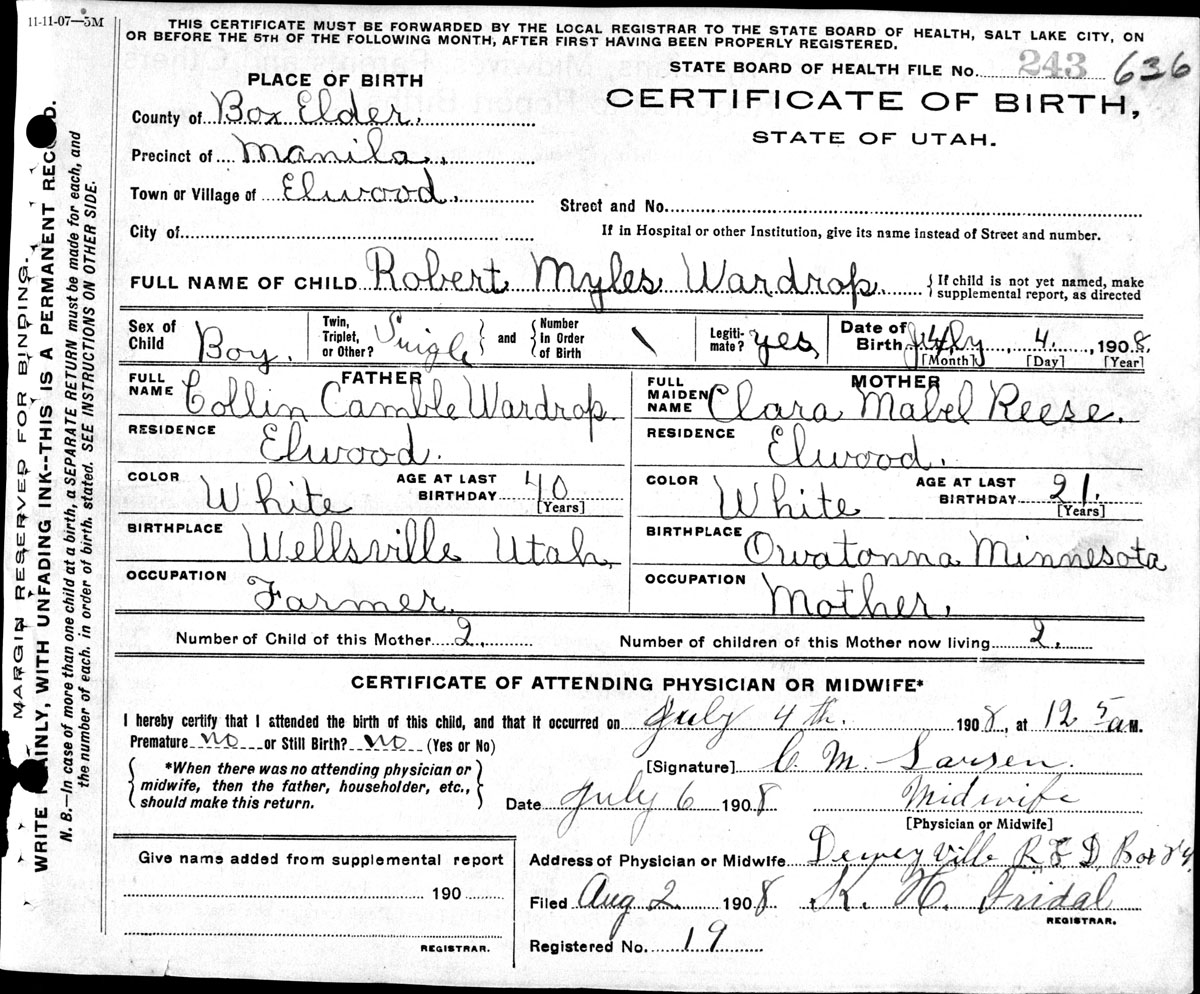 11-11-07—5M
THIS CERTIFICATE MUST BE FORWARDED BY THE LOCAL REGISTRAR TO THE STATE BOARD OF HEALTH, SALT LAKE CITY, ON
OR BEFORE THE 5TH OF THE FOLLOWING MONTH, AFTER FIRST HAVING BEEN PROPERLY REGISTERED.
STATE BOARD OF HEALTH FILE No. 243 636
PLACE OF BIRTH
CERTIFICATE OF BIRTH,
STATE OF UTAH.
County of Box Elder.
Precinct of Manila.
Town or Village of Elwood.
Street and No.
City of
If in Hospital or other Institution, give its name instead of Street and number.
FULL NAME OF CHILD Robert Myles Wardrop. { If child is not yet named, make supplemental report, as directed
Sex of Child Boy. Twin, Triplet, or Other? Single } and { Number In Order of Birth \ Legiti- mate? yes Date of Birth July 4. 1908. [Month] [Day] [Year]
FATHER
FULL NAME Collin Camble Wardrop.
RESIDENCE Elwood.
COLOR White AGE AT LAST BIRTHDAY 40 [Years]
BIRTHPLACE Wellsville Utah,
OCCUPATION Farmer.
MOTHER
FULL MAIDEN NAME Clara Mabel Reese.
RESIDENCE Elwood.
COLOR White AGE AT LAST BIRTHDAY 21. [Years]
BIRTHPLACE Owatonna Minnesota
OCCUPATION Mother.
Number of Child of this Mother 2. Number of children of this Mother now living 2.
CERTIFICATE OF ATTENDING PHYSICIAN OR MIDWIFE*
I hereby certify that I attended the birth of this child, and that it occurred on July 4th. 1908, at 12 5 a M.
Premature no or Still Birth? no (Yes or No)
{ *When there was no attending physician or midwife, then the father, householder, etc., should make this return. }
[Signature] C. M. Larsen.
Date July 6 1908 Midwife
[Physician or Midwife]
Address of Physician or Midwife Deweyville R F D, Box
Filed Aug 2 1908 K. H. Fridal
REGISTRAR.
Registered No. 19
Give name added from supplemental report
190
REGISTRAR.
MARGIN RESERVED FOR BINDING.
WRITE PLAINLY, WITH UNFADING INK--THIS IS A PERMANENT RECORD.
N. B.—In case of more than one child at a birth, a SEPARATE RETURN must be made for each, and
the number of each. in order of birth. stated. SEE INSTRUCTIONS ON OTHER SIDE.